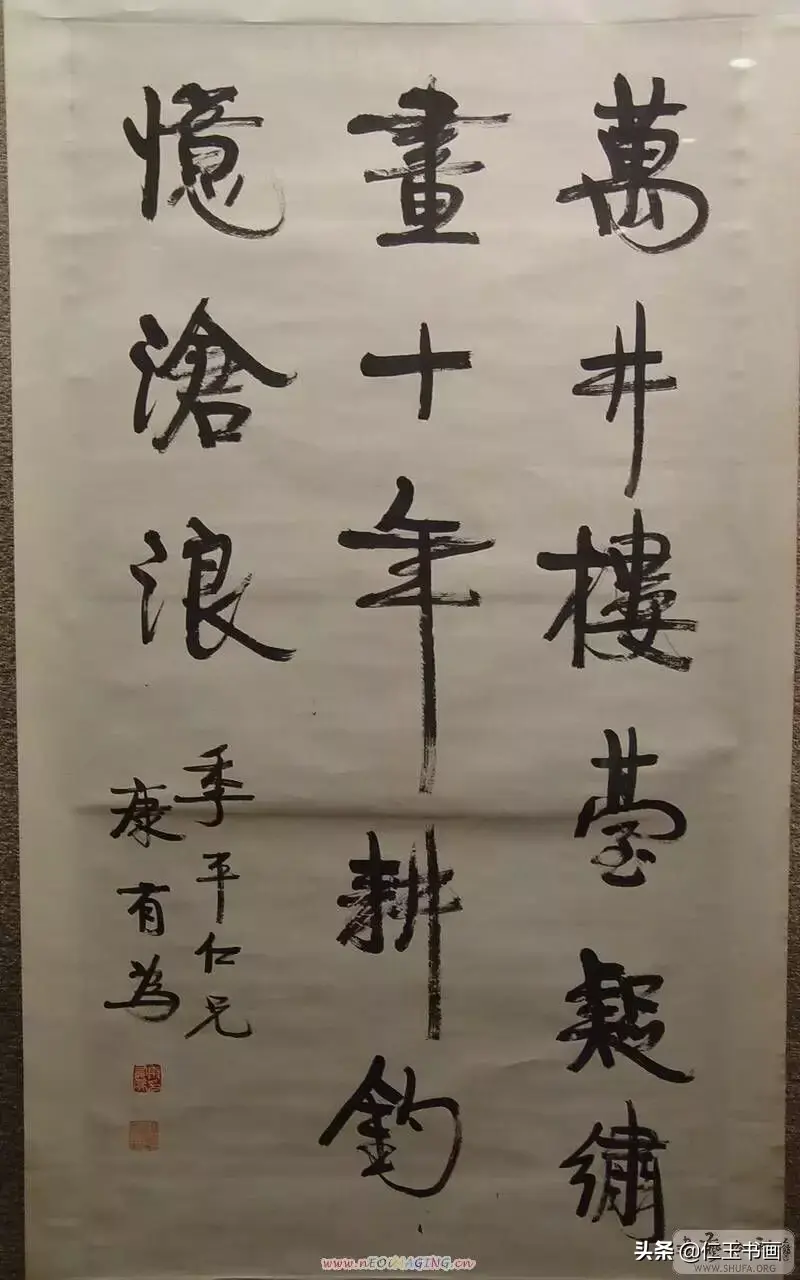 萬井樓臺疑繡
畫十年耕釣
憶滄浪
季平仁兄
康有為
头条@仁玉书画
WWW.SHUFA.ORG
www.nEOIMAGING.cn